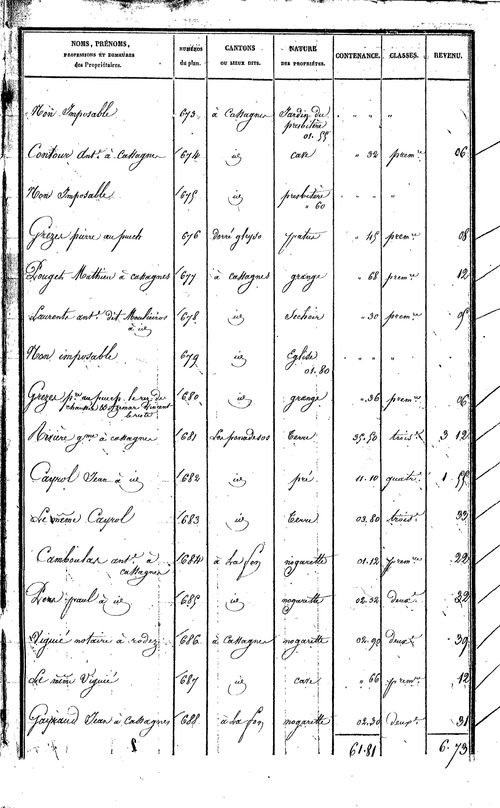 NOMS, PRÉNOMS, PROFESSIONS ET DEMEURES des Propriétaires. NUMÉROS du plan. CANTONS OU LIEUX DITS. NATURE DES PROPRIÉTÉS. CONTENANCE. CLASSES. REVENU.
Non Imposable 673 à Cassagnes Jardin du presbitere 01.55 " " "
Contour Ant.e à Cassagnes 674 id case " 32 prem.re 06
Non Imposable 675 id presbitere " 60 " " "
Grezes pierre au puech 676 derré glyso patus " 45 prem.re 08
Pouget Mathieu à cassagnes 677 à cassagnes grange " 68 prem.re 12
Laurente ant.e dit à id 678 id Sechoir " 30 prem.re 05
Non imposable 679 id Eglise 01.80 " " "
Grezes p.re au puech 680 id grange " 36 prem.re 06
Riviere g.me à cassagnes 681 Les penadesos Terre 35.50 trois.e 3 12
Cayrol Jean à id 682 id pré 11.10 quatr.e 1 55
Le même Cayrol 683 id Terre 03.80 trois.e 33
Camboulas ant.e à cassagnes 684 à La fon nogarette 01.12 prem.re 22
Pons paul à id 685 id nogarette 02.32 deux.e 32
Viguié notaire à rodez 686 à Cassagnes nogarette 02.90 deux.e 39
Le même Viguié 687 id case " 66 prem.re 12
Gayraud Jean à Cassagnes 688 à La fon nogarette 02.30 deux.e 31
61.81 6.73